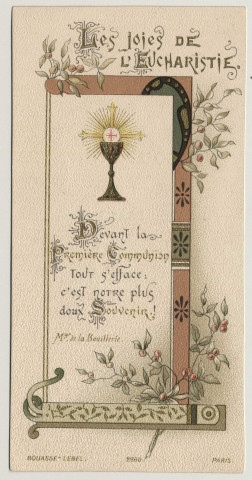 Les joies de
l'Eucharistie.
Devant la
Première Communion
tout s'efface:
c'est notre plus
doux Souvenir!
Mgr de la Bouillerie.
BOUASSE-LEBEL. PARIS.